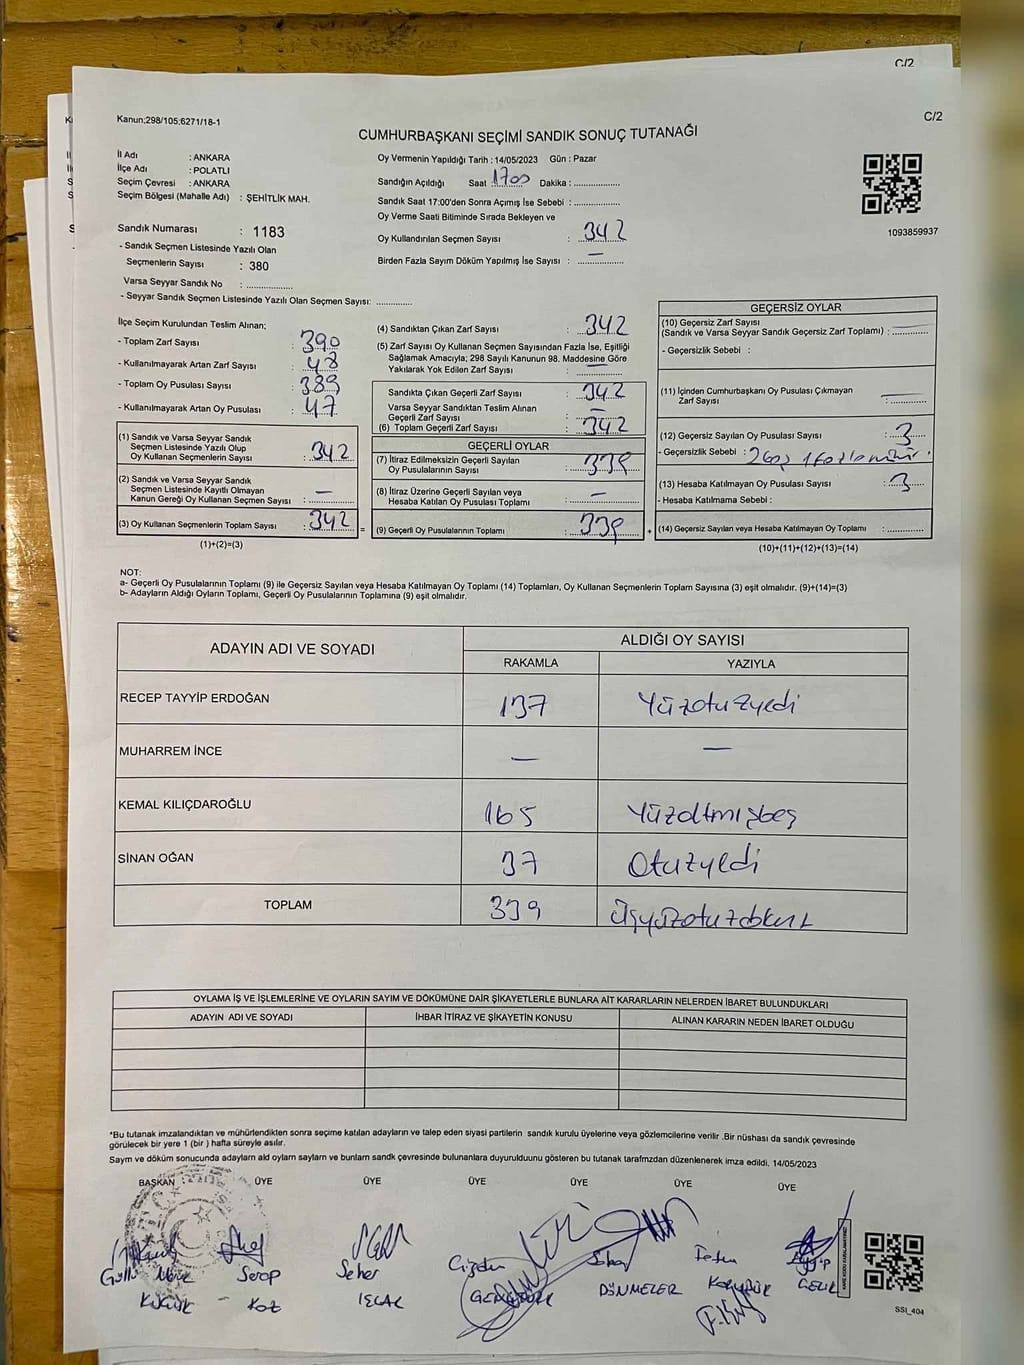 C/2
Kanun:298/105;6271/18-1
C/2
CUMHURBAŞKANI SEÇİMİ SANDIK SONUÇ TUTANAĞI
İl Adı : ANKARA
İlçe Adı : POLATLI
Seçim Çevresi : ANKARA
Seçim Bölgesi (Mahalle Adı) : ŞEHİTLİK MAH.
Sandık Numarası : 1183
- Sandık Seçmen Listesinde Yazılı Olan
Seçmenlerin Sayısı : 380
Varsa Seyyar Sandık No : ..................
- Seyyar Sandık Seçmen Listesinde Yazılı Olan Seçmen Sayısı: ..............
Oy Vermenin Yapıldığı Tarih : 14/05/2023 Gün : Pazar
Sandığın Açıldığı Saat 1700 Dakika : ..................
Sandık Saat 17:00'den Sonra Açımış İse Sebebi : ..................
Oy Verme Saati Bitiminde Sırada Bekleyen ve
Oy Kullandırılan Seçmen Sayısı : 342
Birden Fazla Sayım Döküm Yapılmış İse Sayısı : —
1093859937
İlçe Seçim Kurulundan Teslim Alınan;
- Toplam Zarf Sayısı : 390
- Kullanılmayarak Artan Zarf Sayısı : 48
- Toplam Oy Pusulası Sayısı : 389
- Kullanılmayarak Artan Oy Pusulası : 47
(1) Sandık ve Varsa Seyyar Sandık
Seçmen Listesinde Yazılı Olup
Oy Kullanan Seçmenlerin Sayısı : 342
(2) Sandık ve Varsa Seyyar Sandık
Seçmen Listesinde Kayıtlı Olmayan
Kanun Gereği Oy Kullanan Seçmen Sayısı : —
(3) Oy Kullanan Seçmenlerin Toplam Sayısı : 342 =
(1)+(2)=(3)
(4) Sandıktan Çıkan Zarf Sayısı : 342
(5) Zarf Sayısı Oy Kullanan Seçmen Sayısından Fazla İse, Eşitliği
Sağlamak Amacıyla; 298 Sayılı Kanunun 98. Maddesine Göre
Yakılarak Yok Edilen Zarf Sayısı : —
Sandıkta Çıkan Geçerli Zarf Sayısı : 342
Varsa Seyyar Sandıktan Teslim Alınan
Geçerli Zarf Sayısı : —
(6) Toplam Geçerli Zarf Sayısı : 342
GEÇERLİ OYLAR
(7) İtiraz Edilmeksizin Geçerli Sayılan
Oy Pusulalarının Sayısı : 339
(8) İtiraz Üzerine Geçerli Sayılan veya
Hesaba Katılan Oy Pusulası Toplamı : —
(9) Geçerli Oy Pusulalarının Toplamı : 339 +
GEÇERSİZ OYLAR
(10) Geçersiz Zarf Sayısı
(Sandık ve Varsa Seyyar Sandık Geçersiz Zarf Toplamı) : —
- Geçersizlik Sebebi :
(11) İçinden Cumhurbaşkanı Oy Pusulası Çıkmayan
Zarf Sayısı : —
(12) Geçersiz Sayılan Oy Pusulası Sayısı : 3
- Geçersizlik Sebebi : 2 boş 1 fazla mühür.
(13) Hesaba Katılmayan Oy Pusulası Sayısı : 3
- Hesaba Katılmama Sebebi :
(14) Geçersiz Sayılan veya Hesaba Katılmayan Oy Toplamı : ............
(10)+(11)+(12)+(13)=(14)
NOT:
a- Geçerli Oy Pusulalarının Toplamı (9) ile Geçersiz Sayılan veya Hesaba Katılmayan Oy Toplamı (14) Toplamları, Oy Kullanan Seçmenlerin Toplam Sayısına (3) eşit olmalıdır. (9)+(14)=(3)
b- Adayların Aldığı Oyların Toplamı, Geçerli Oy Pusulalarının Toplamına (9) eşit olmalıdır.
ADAYIN ADI VE SOYADI ALDIĞI OY SAYISI
RAKAMLA YAZIYLA
RECEP TAYYİP ERDOĞAN 137 Yüzotuzyedi
MUHARREM İNCE — —
KEMAL KILIÇDAROĞLU 165 Yüzaltmışbeş
SİNAN OĞAN 37 Otuzyedi
TOPLAM 339 üçyüzotuzdokuz
OYLAMA İŞ VE İŞLEMLERİNE VE OYLARIN SAYIM VE DÖKÜMÜNE DAİR ŞİKAYETLERLE BUNLARA AİT KARARLARIN NELERDEN İBARET BULUNDUKLARI
ADAYIN ADI VE SOYADI İHBAR İTİRAZ VE ŞİKAYETİN KONUSU ALINAN KARARIN NEDEN İBARET OLDUĞU
*Bu tutanak imzalandıktan ve mühürlendikten sonra seçime katılan adayların ve talep eden siyasi partilerin sandık kurulu üyelerine veya gözlemcilerine verilir .Bir nüshası da sandık çevresinde
görülecek bir yere 1 (bir ) hafta süreyle asılır.
Sayım ve döküm sonucunda adayların aldı oyların sayları ve bunların sandk çevresinde bulunanlara duyurulduunu gösteren bu tutanak tarafmzdan düzenlenerek imza edildi. 14/05/2023
BAŞKAN ÜYE ÜYE ÜYE ÜYE ÜYE ÜYE
Serap Seher Çiğdem
KÜÇÜK KOZ DÖNMELER
SSI_404